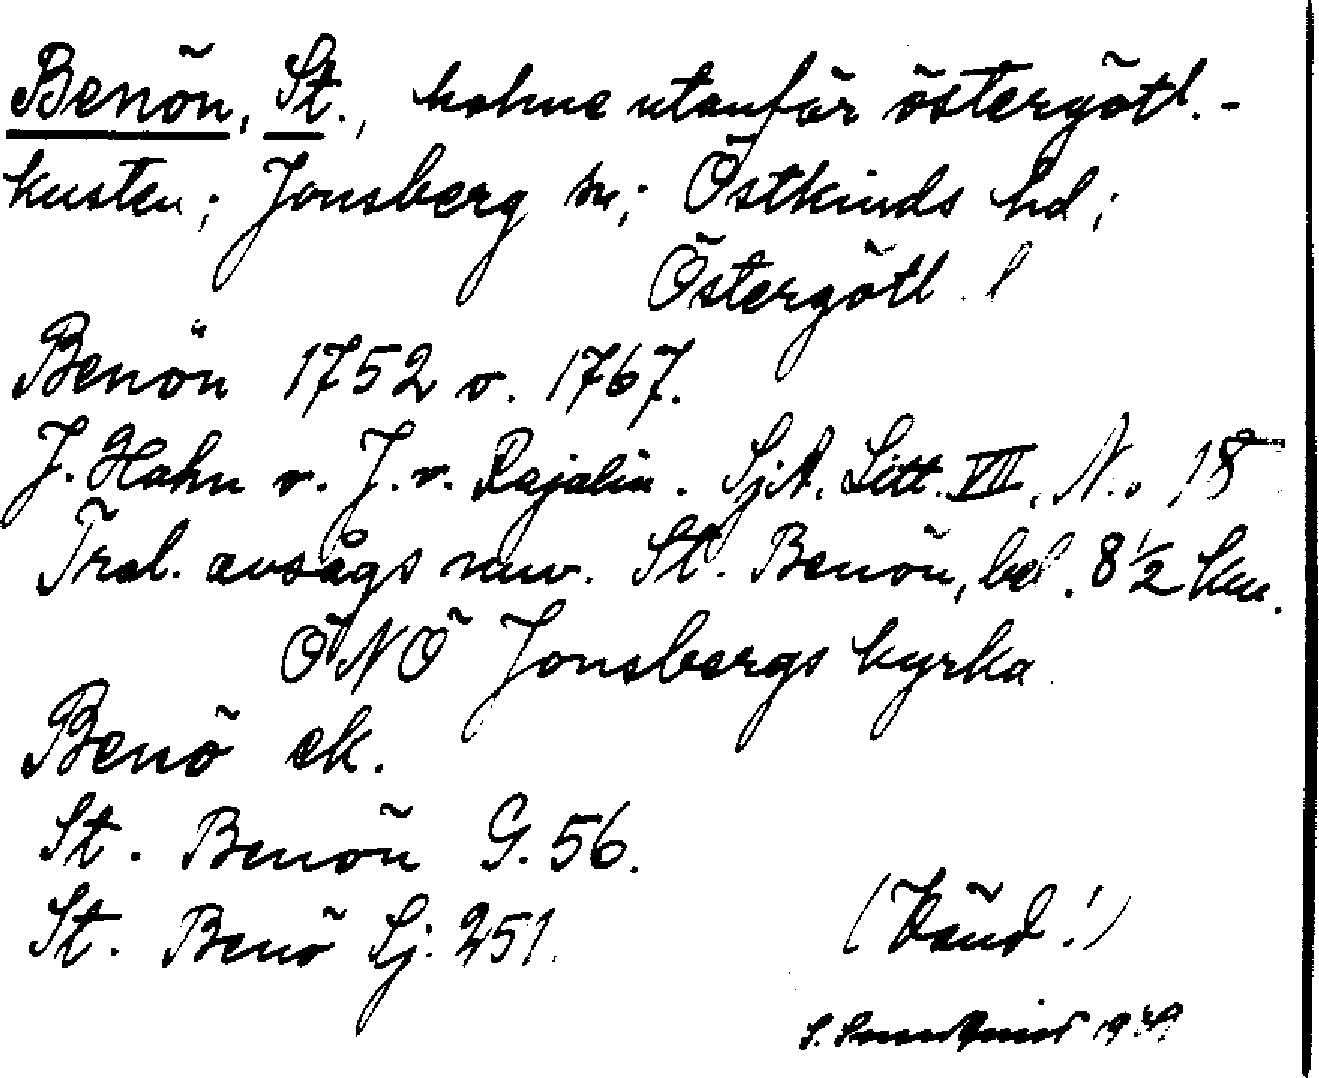 Benön, St., holme utanför östergötl.-
kusten; Jonsberg sn; Östkinds hd;
Östergötl. l
Benön 1752 o. 1767.
J. Hahn o. J. v. Rajalin. SjA. Litt. VII, No 18
Trol. avsågs nuv. St. Benön, bel. 8½ km.
ÖNÖ Jonsbergs kyrka.
Benö ek.
St. Benön G. 56.
St. Benö Sj. 251.
(Vänd!)
S.